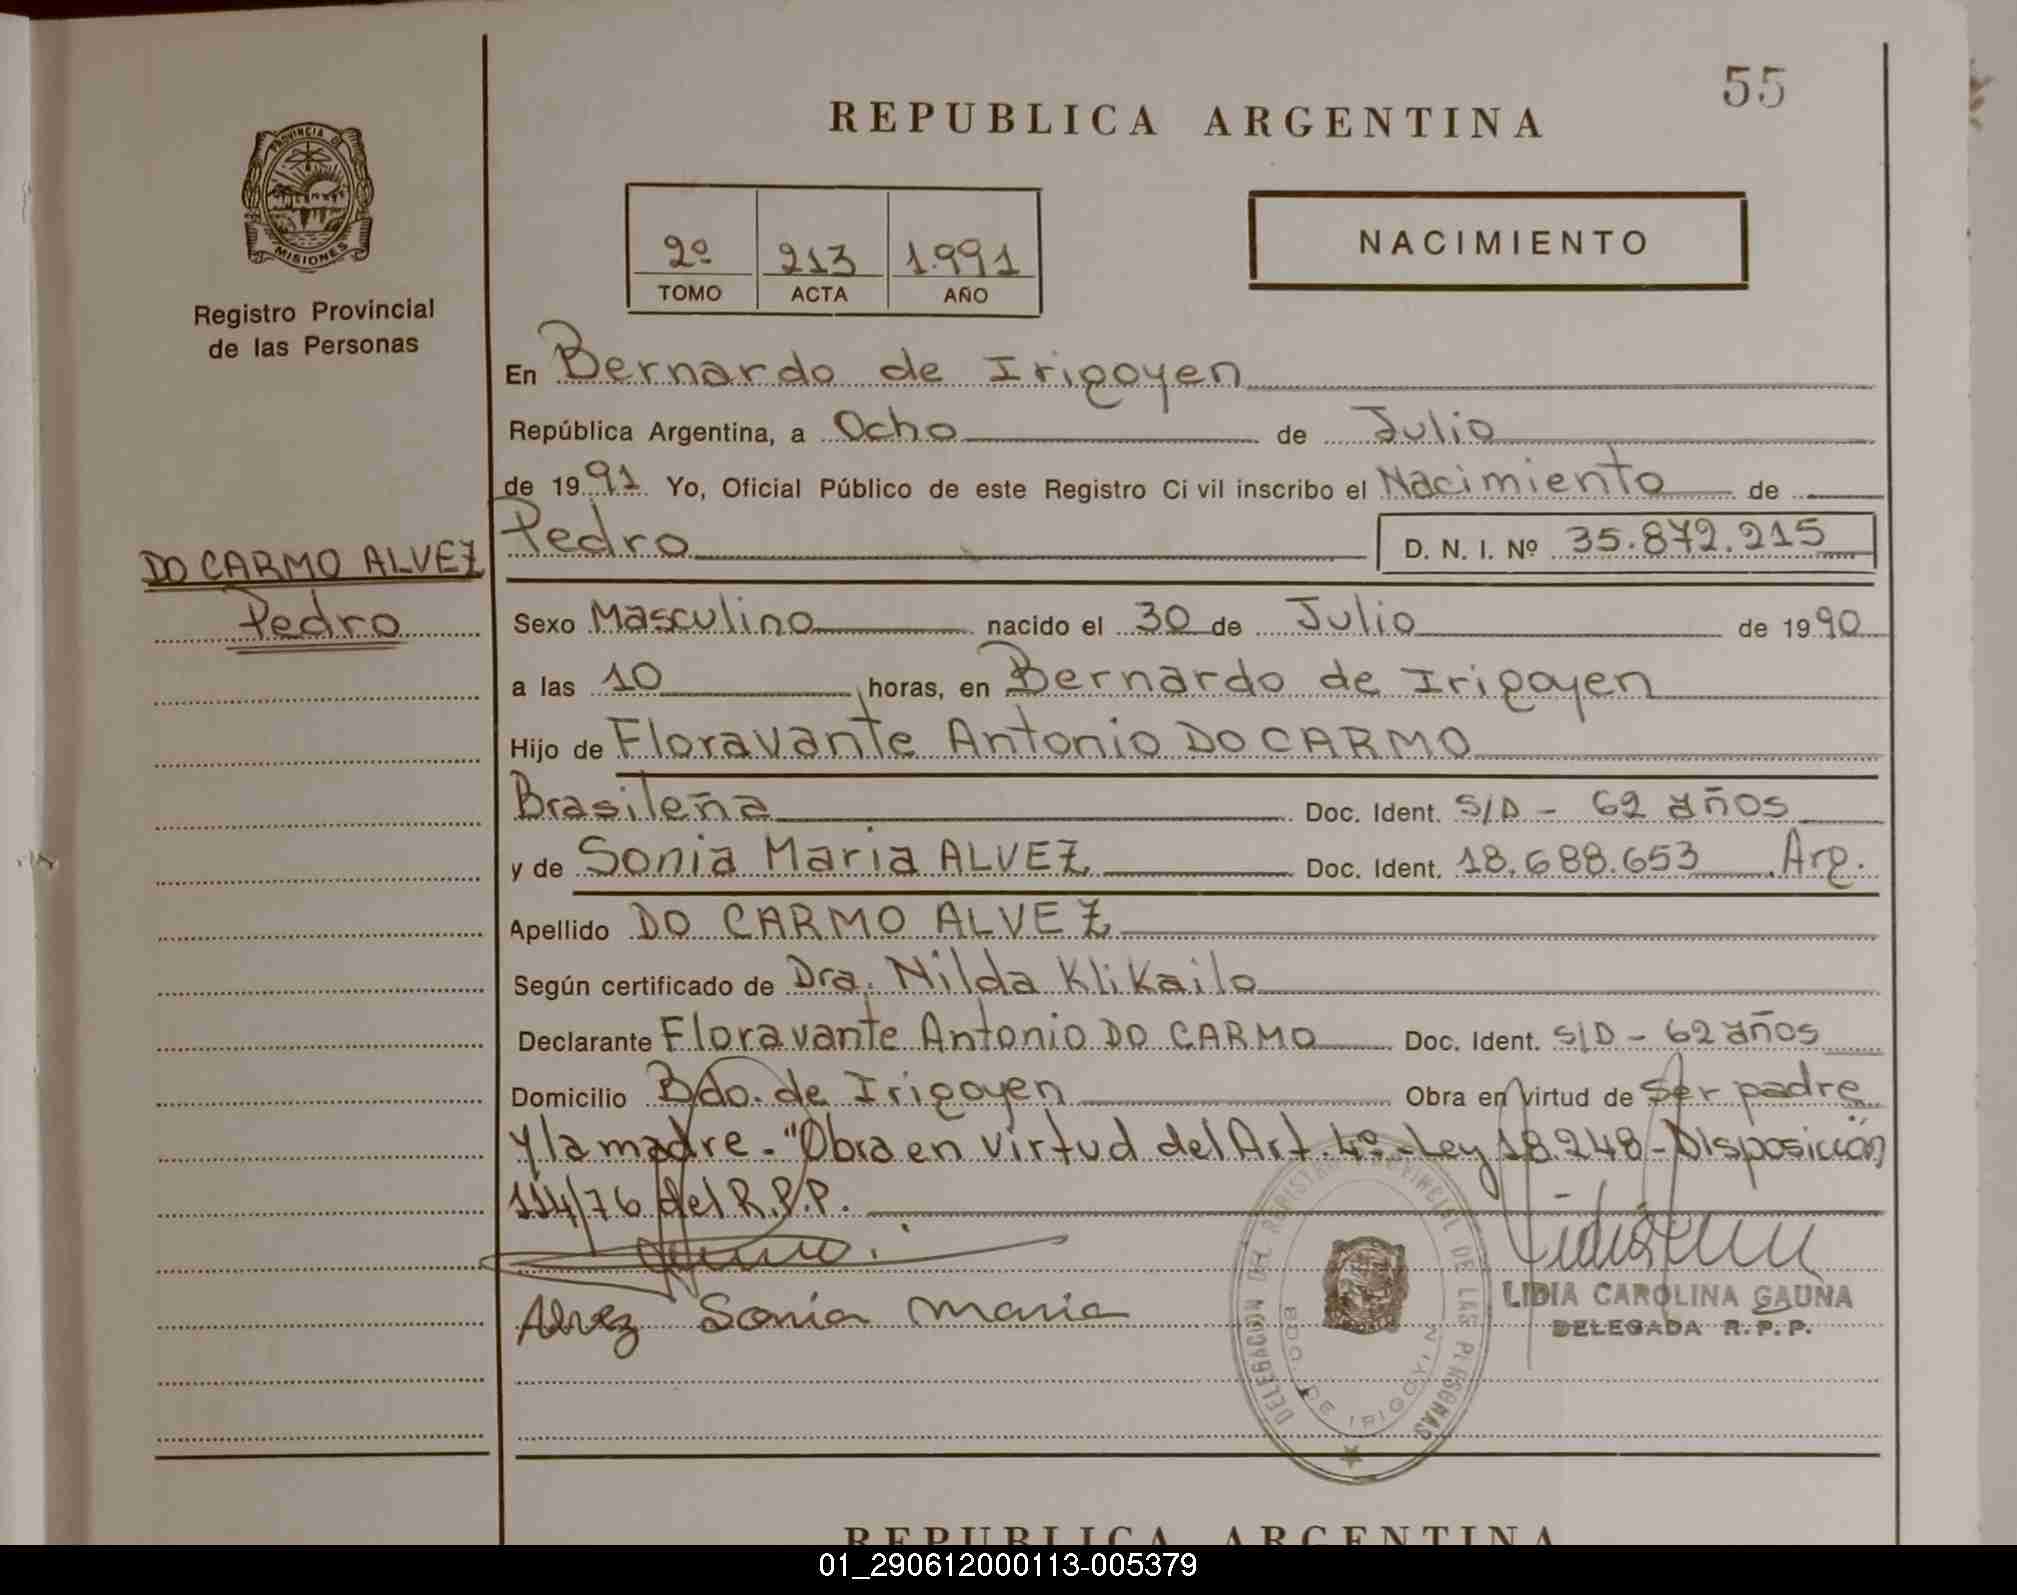 55
REPUBLICA ARGENTINA
PROVINCIA DE
MISIONES
Registro Provincial
de las Personas
2º 213 1.991
TOMO ACTA AÑO
NACIMIENTO
En Bernardo de Irigoyen
República Argentina, a Ocho de Julio
de 1991 Yo, Oficial Público de este Registro Civil inscribo el Nacimiento de
Pedro D. N. I. Nº 35.872.215
DO CARMO ALVEZ
Pedro
Sexo Masculino nacido el 30 de Julio de 1990
a las 10 horas, en Bernardo de Irigoyen
Hijo de Floravante Antonio DO CARMO
Brasileña Doc. Ident. S/D - 62 años
y de Sonia Maria ALVEZ Doc. Ident. 18.688.653 Arg.
Apellido DO CARMO ALVEZ
Según certificado de Dra. Nilda Klikailo
Declarante Floravante Antonio DO CARMO Doc. Ident. S/D - 62 años
Domicilio Bdo. de Irigoyen Obra en virtud de ser padre
y la madre - "Obra en virtud del Art. 4º - Ley 18.248 - Disposición
114/76 del R.P.P.
Alvez Sonia Maria
DELEGACION DEL REGISTRO PROVINCIAL DE LAS PERSONAS
BDO. DE IRIGOYEN
LIDIA CAROLINA GAUNA
DELEGADA R.P.P.
REPUBLICA ARGENTINA
01_290612000113-005379